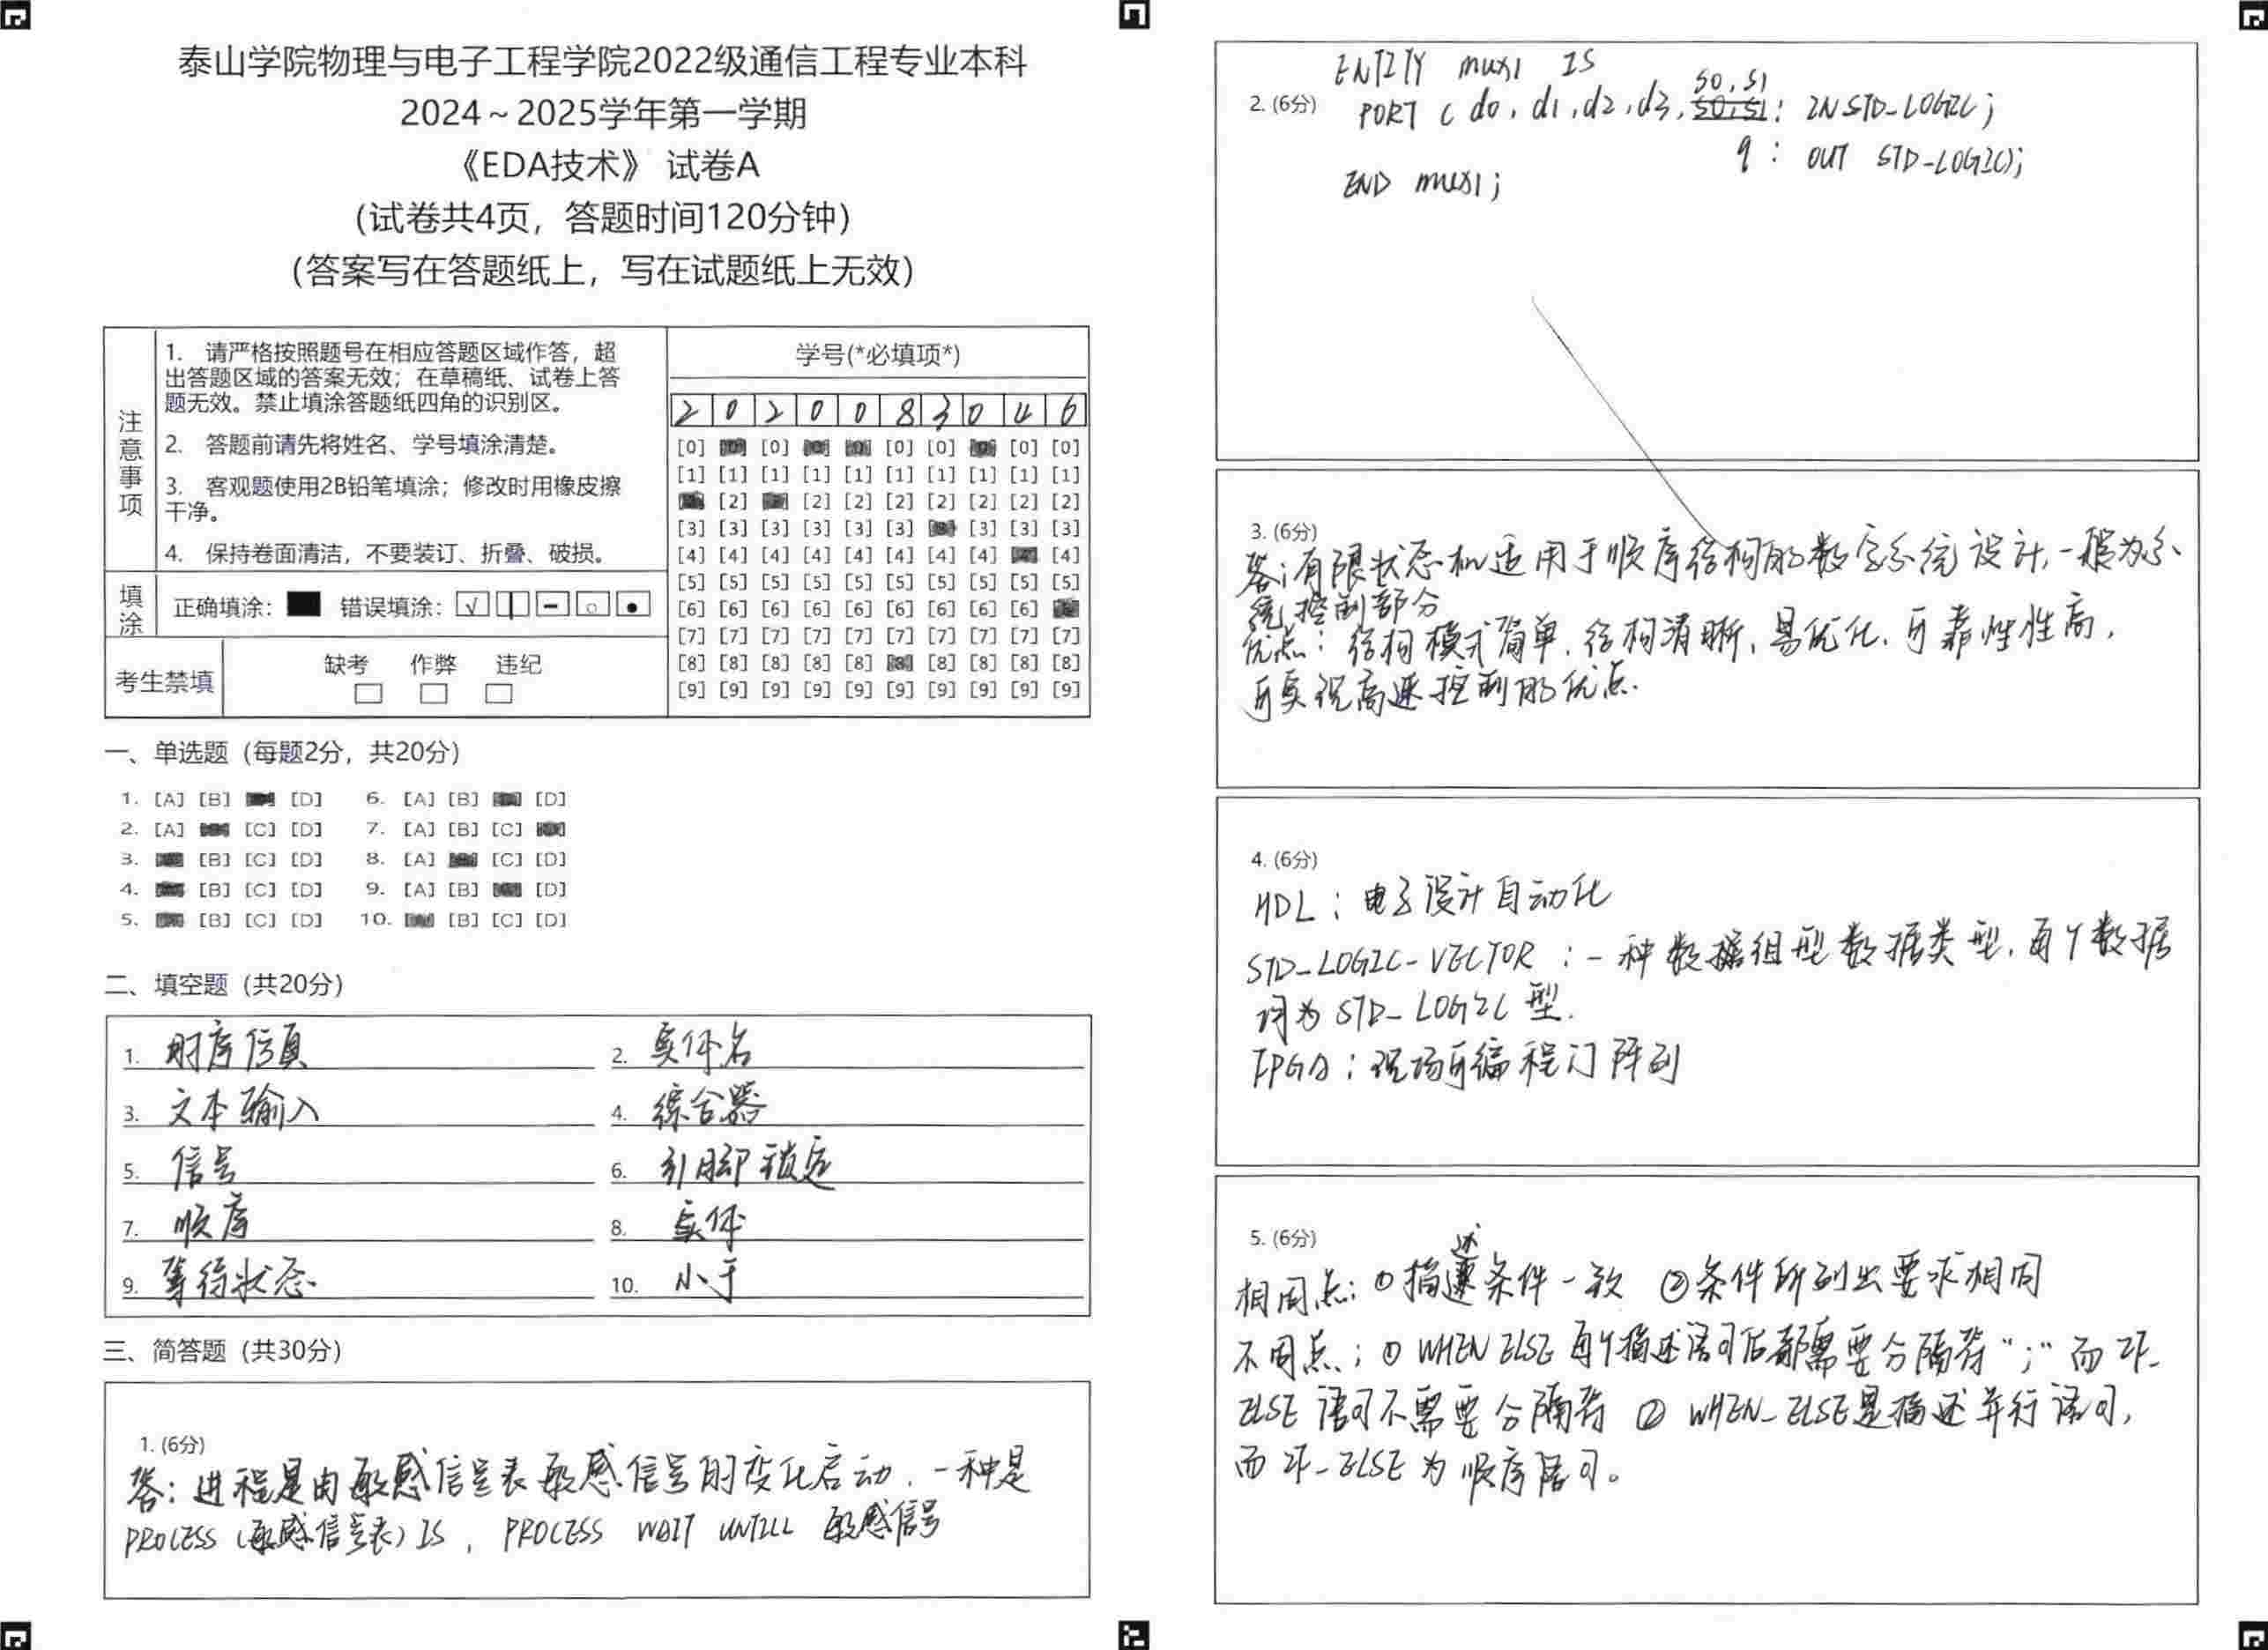 泰山学院物理与电子工程学院2022级通信工程专业本科
2024～2025学年第一学期
《EDA技术》 试卷A
(试卷共4页，答题时间120分钟)
(答案写在答题纸上，写在试题纸上无效)
注意事项
1. 请严格按照题号在相应答题区域作答，超
出答题区域的答案无效；在草稿纸、试卷上答
题无效。禁止填涂答题纸四角的识别区。
2. 答题前请先将姓名、学号填涂清楚。
3. 客观题使用2B铅笔填涂；修改时用橡皮擦
干净。
4. 保持卷面清洁，不要装订、折叠、破损。
填涂
正确填涂： 错误填涂：
考生禁填
缺考 作弊 违纪
学号(*必填项*)
2 0 2 0 0 8 3 0 4 6
[0] [0] [0] [0] [0] [0]
[1] [1] [1] [1] [1] [1] [1] [1] [1] [1]
[2] [2] [2] [2] [2] [2] [2] [2]
[3] [3] [3] [3] [3] [3] [3] [3] [3]
[4] [4] [4] [4] [4] [4] [4] [4] [4]
[5] [5] [5] [5] [5] [5] [5] [5] [5] [5]
[6] [6] [6] [6] [6] [6] [6] [6] [6]
[7] [7] [7] [7] [7] [7] [7] [7] [7] [7]
[8] [8] [8] [8] [8] [8] [8] [8] [8]
[9] [9] [9] [9] [9] [9] [9] [9] [9] [9]
一、单选题 (每题2分，共20分)
1. [A] [B] [D] 6. [A] [B] [D]
2. [A] [C] [D] 7. [A] [B] [C]
3. [B] [C] [D] 8. [A] [C] [D]
4. [B] [C] [D] 9. [A] [B] [D]
5. [B] [C] [D] 10. [B] [C] [D]
二、填空题 (共20分)
1. 时序仿真 2. 实体名
3. 文本输入 4. 综合器
5. 信号 6. 引脚锁定
7. 顺序 8. 实体
9. 等待状态 10. 小于
三、简答题 (共30分)
1. (6分)
答：进程是由敏感信号表敏感信号的变化启动．一种是
PROCESS (敏感信号表) IS , PROCESS WAIT UNTILL 敏感信号
2. (6分)
ENTITY mux1 IS
PORT ( d0, d1, d2, d3, s0, s1 : IN STD_LOGIC;
q : OUT STD_LOGIC);
END mux1;
3. (6分)
答：有限状态机适用于顺序结构的数字系统设计，一般为系
统控制部分
优点：结构模式简单，结构清晰，易优化，可靠性性高，
可实现高速控制的优点．
4. (6分)
HDL：电子设计自动化
STD_LOGIC_VECTOR：一种数据组型数据类型，每个数据
均为STD_LOGIC型．
FPGA：现场可编程门阵列
5. (6分)
相同点：①描述条件一致 ②条件所列出要求相同
不同点：① WHEN ELSE 每个描述语句后都需要分隔符“；”而IF_
ELSE 语句不需要分隔符 ② WHEN_ELSE是描述并行语句，
而 IF_ELSE 为顺序语句。